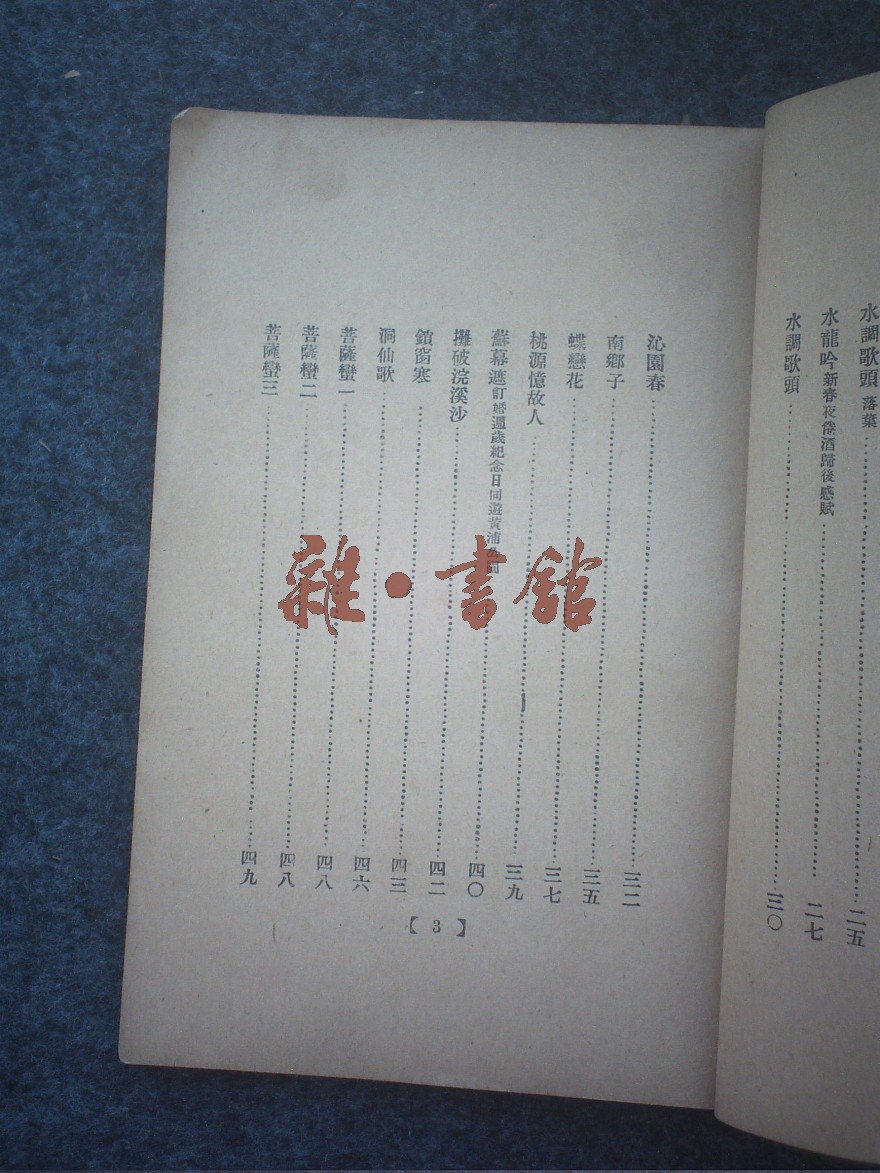 水調歌頭 落葉……二五
水龍吟 新春夜酒歸後感賦……二七
水調歌頭……三〇
沁園春……三二
南鄉子……三五
蝶戀花……三七
桃源憶故人……三九
蘇幕遮 訂婚週歲紀念日同遊黃浦……四〇
攤破浣溪沙……四二
鎖窗寒……四三
洞仙歌……四六
菩薩蠻一……四八
菩薩蠻二……四八
菩薩蠻三……四九
【3】
雜·書館